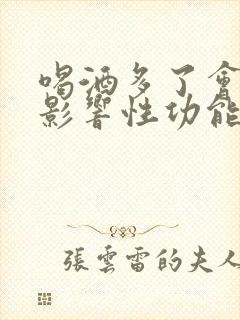 喝酒多了會
影響性功能
張雲雷的夫人